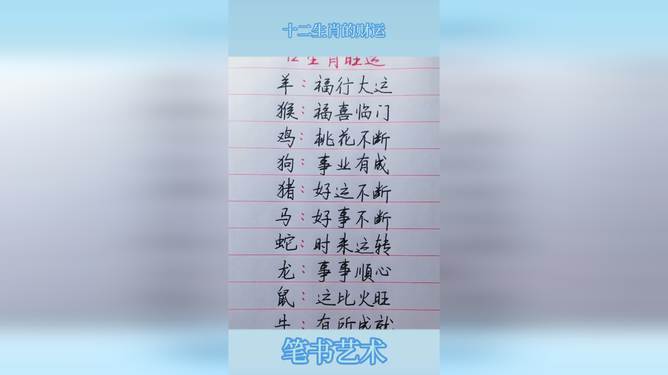 十二生肖的财运
12生肖旺运
羊：福行大运
猴：福喜临门
鸡：桃花不断
狗：事业有成
猪：好运不断
马：好事不断
蛇：时来运转
龙：事事順心
鼠：这比火旺
牛：有所成就
笔书艺术